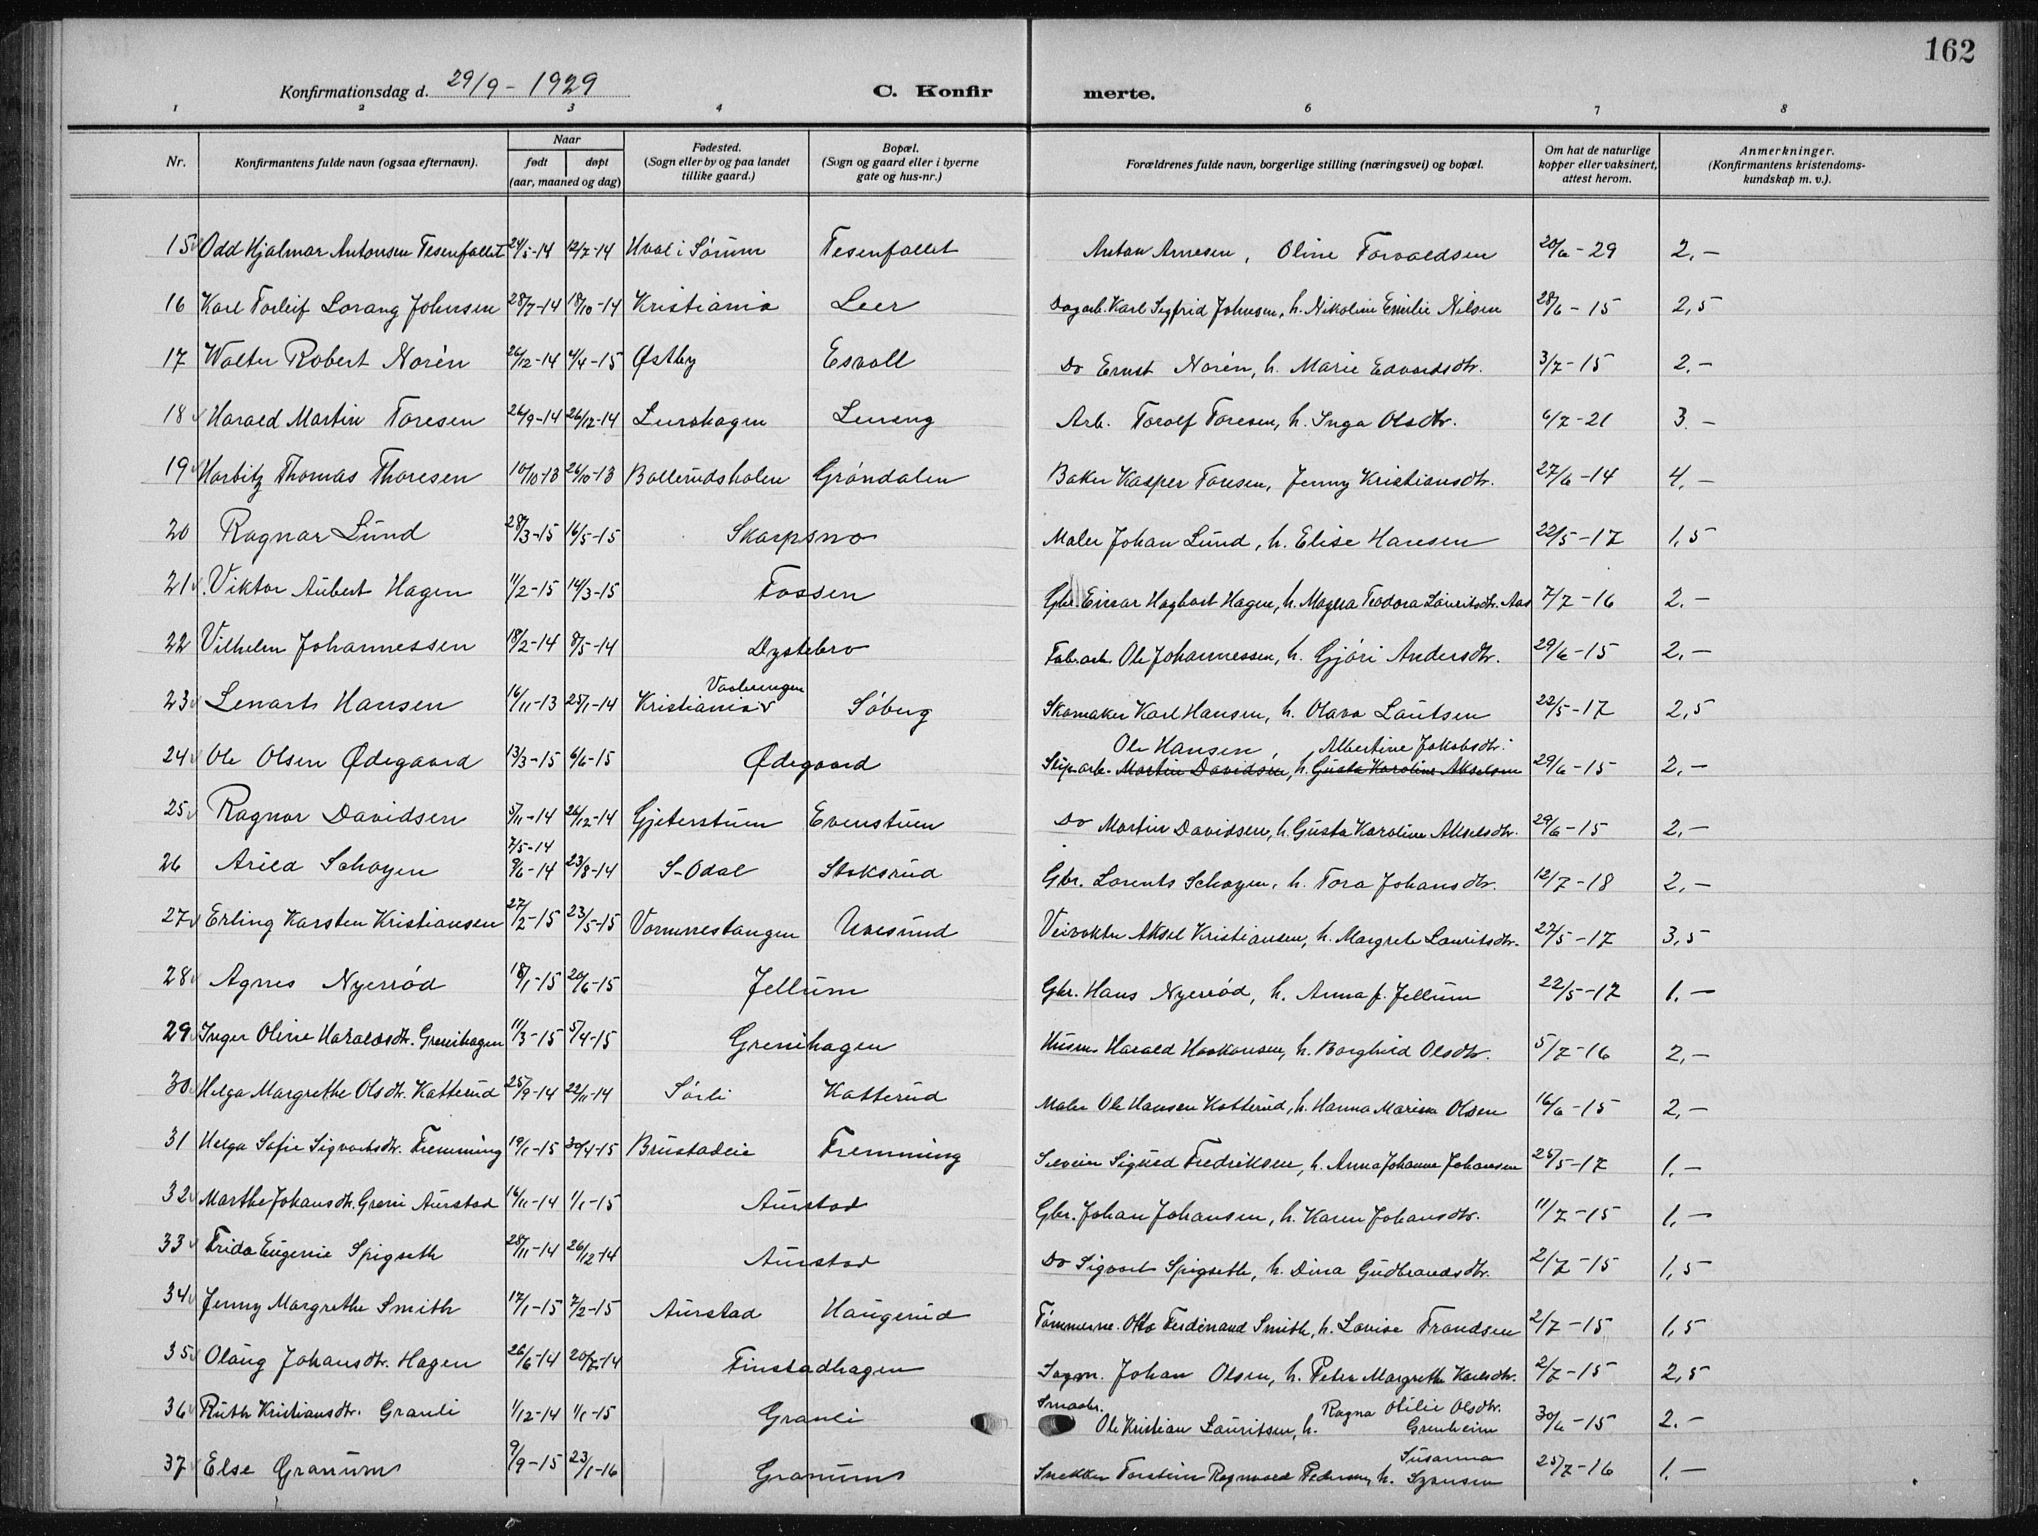 162
Konfirmationsdag d. 29/9 - 1929 C. Konfirmerte.
1 2 3 4 6 7 8
Nr. Konfirmantens fulde navn (ogsaa efternavn). Naar født døpt (aar, maaned og dag) Fødested. (Sogn eller by og paa landet tillike gaard.) Bopæl. (Sogn og gaard eller i byerne gate og hus-nr.) Forældrenes fulde navn, borgerlige stilling (næringsvei) og bopæl. Om hat de naturlige kopper eller vaksinert, attest herom. Anmerkninger. (Konfirmantens kristendomskundskap m. v.).
15 Odd Hjalmar Antonsen Tesenfallet 24/5-14 12/7-14 Hval i Sørum Tesenfallet Anton Arnesen, Oline Torvaldsen 20/6-29 2,-
16 Karl Torleif Lorang Johnsen 28/7-14 18/10-14 Kristiania Leer Dagarb. Karl Sigfrid Johnsen, h. Nikoline Emilie Nilsen 28/6-15 2,5
17 Walter Robert Norén 26/12-14 4/4-15 Østby Esvall Do Ernst Norén, h. Marie Edvardsdtr. 3/7-15 2.-
18 Harald Martin Toresen 26/9-14 26/12-14 Leirshagen Lureng Arb. Torolf Toresen, h. Inga Olsdtr. 6/7-21 3.-
19 Harbitz Thomas Thoresen 10/10-13 26/10-13 Bollerudsholen Grøndalen Baker Kasper Toresen, Jenny Kristiansdtr. 27/6-14 4,-
20 Ragnar Lund 28/3-15 16/5-15 Skarpsno Maler Johan Lund, h. Elise Hansen 22/5-17 1,5
21 Viktor Aubert Hagen 11/2-15 14/3-15 Fossen Gbr. Einar Hagbart Hagen, h. Magna Teodora Lauritsdtr. Aas 7/7-16 2.-
22 Vilhelm Johannessen 18/2-14 8/5-14 Dystebro Fab.arb. Ole Johannessen, h. Gjøri Andersdtr. 29/6-15 2,-
23 Lenart Hansen 16/11-13 25/1-14 Vaalerengen Kristiania Søberg Skomaker Karl Hansen, h. Olava Lautsen 22/5-17 2,5
24 Ole Olsen Ødegaard 13/3-15 6/6-15 Ødegaard Ole Hansen, Albertine Jakobsdtr.
Slip.arb. Martin Davidsen, h. Gusta Karoline Akselsen 29/6-15 2,-
25 Ragnar Davidsen 5/11-14 26/12-14 Gjeterstuen Evenstuen Do Martin Davidsen, h. Gusta Karoline Akselsdtr. 29/6-15 2,-
26 Arild Schøyen 7/5-14 9/6-14 23/8-14 S-Odal Stoksrud Gbr. Lorents Schøyen, h. Tora Johansdtr. 12/7-18 2,-
27 Erling Karsten Kristiansen 27/2-15 23/5-15 Vormnestangen Uvesund Veivokter Aksel Kristiansen, h. Margrete Lauritsdtr. 27/5-17 3,5
28 Agnes Nyerrød 18/1-15 20/6-15 Jellum Gbr. Hans Nyerrød, h. Anna f. Jellum 22/5-17 1.-
29 Inger Oline Haraldsdtr. Grenihagen 11/3-15 5/4-15 Grenihagen Husm. Harald Haakonsen, h. Borghild Olsdtr. 5/7-16 2,-
30 Helga Margrethe Olsdtr. Katterud 25/9-14 22/11-14 Sørli Katterud Maler Ole Hansen Katterud, h. Hanna Marina Olsen 16/6-15 2,-
31 Helga Sofie Sigvartsdtr. Fremming 19/1-15 30/4-15 Brustadeie Fremming Sigurd Fredriksen, h. Anna Johanne Johansen 25/5-17 1,-
32 Marthe Johansdtr. Greni Aurstad 16/11-14 1/1-15 Aurstad Gbr. Johan Johansen, h. Karen Johansdtr. 11/7-15 1,-
33 Frida Eugenie Spigseth 28/11-14 26/12-14 Aurstad Do Sigvart Spigseth, h. Dina Gudbrandsdtr. 2/7-15 1,5
34 Jenny Margrethe Smith 17/1-15 7/2-15 Aurstad Haugerud Tømmerm. Otto Ferdinand Smith, h. Lovise Trondsen 2/7-15 1,5
35 Olaug Johansdtr. Hagen 26/6-14 20/7-14 Finstadhagen Sagm. Johan Olsen, h. Petra Margrethe Karlsdtr. 2/7-15 2,5
36 Ruth Kristiansdtr. Granli 1/12-14 1/1-15 Granli Smaabr. Ole Kristian Lauritsen, h. Ragna Otilie Olsdtr. Grenheim 30/6-15 2.-
37 Else Granum 9/9-15 23/1-16 Granum Snekker Torstein Ragnvard Pedersen, h. Susanna 25/7-16 1.-